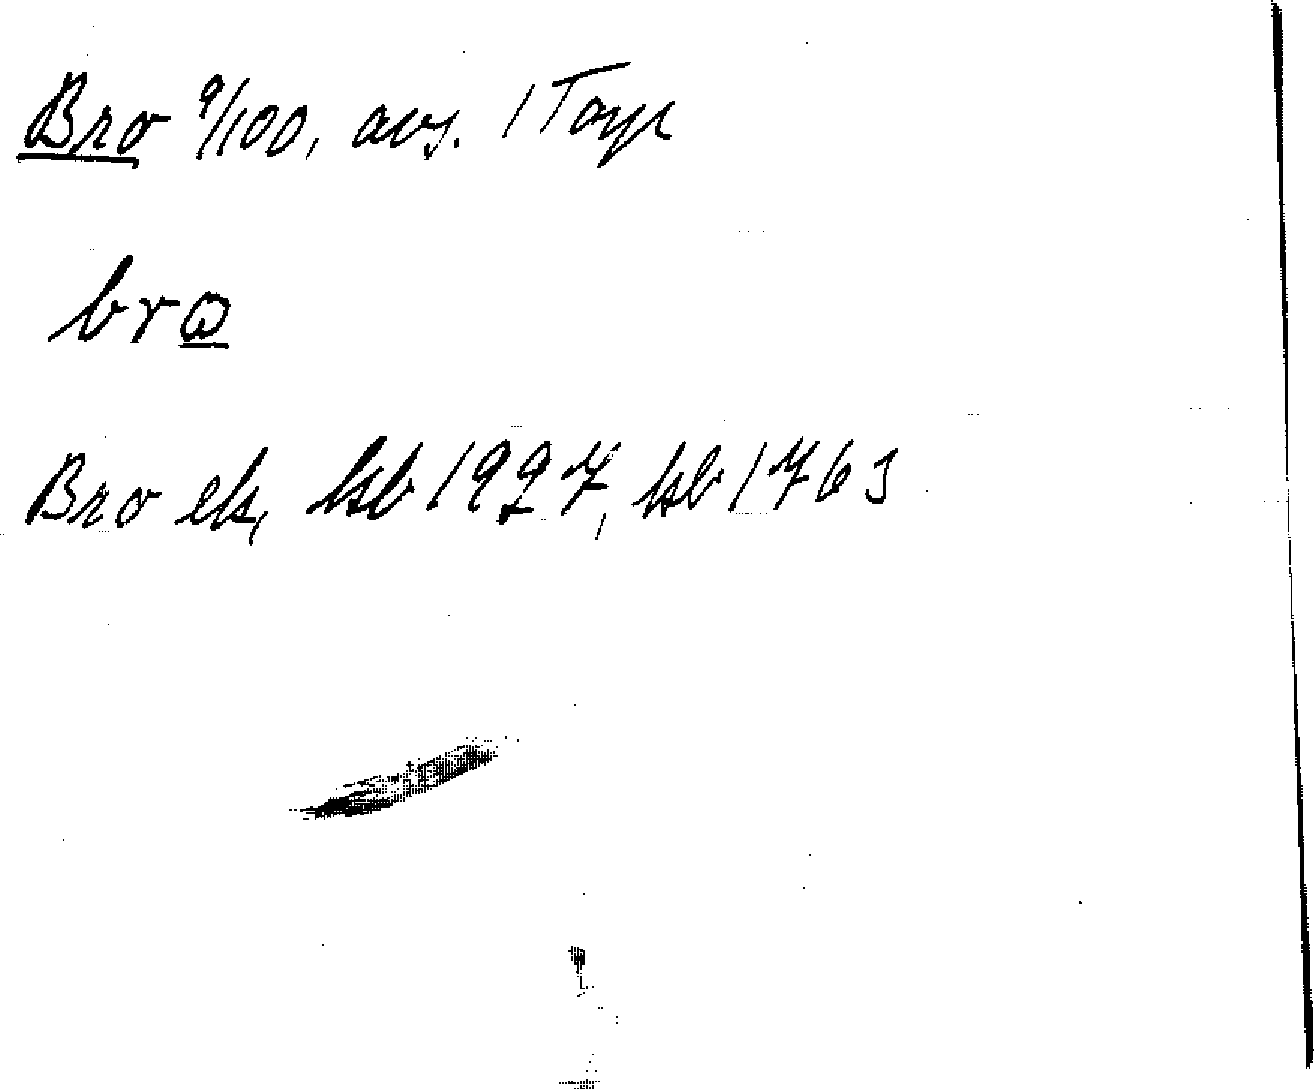 Bro 9/100, avs. 1 Torp
bro
Bro ek, hsb 1927, hsb 1763